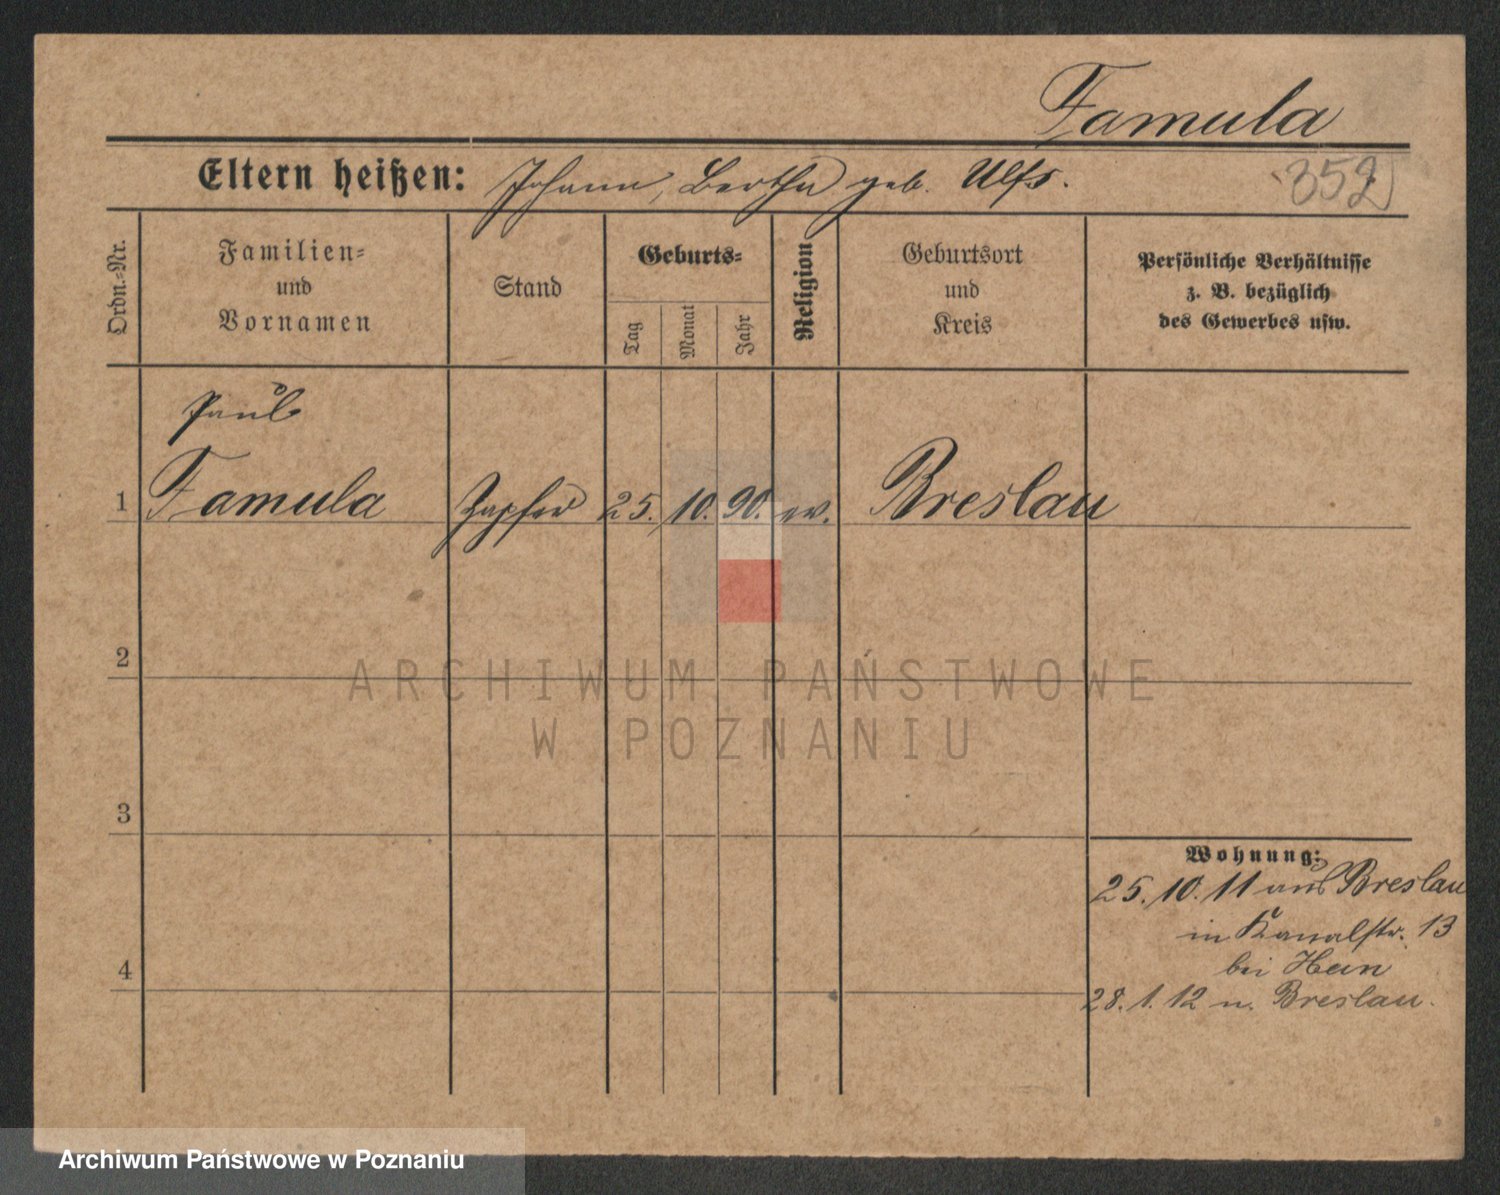 Famula
Eltern heißen: Johann, Bertha geb. Ulfs.
352
Ordn.-Nr.
Familien-
und
Vornamen
Stand
Geburts-
Tag
Monat
Jahr
Religion
Geburtsort
und
Kreis
Persönliche Verhältnisse
z. B. bezüglich
des Gewerbes usw.
Paul
1 Famula Zapfer 25. 10. 90. ev. Breslau
2
ARCHIWUM PAŃSTWOWE
W POZNANIU
3
Wohnung:
25. 10. 11 aus Breslau
in Kanalstr. 13
bei Hein
4
28. 1. 12 n. Breslau.
Archiwum Państwowe w Poznaniu